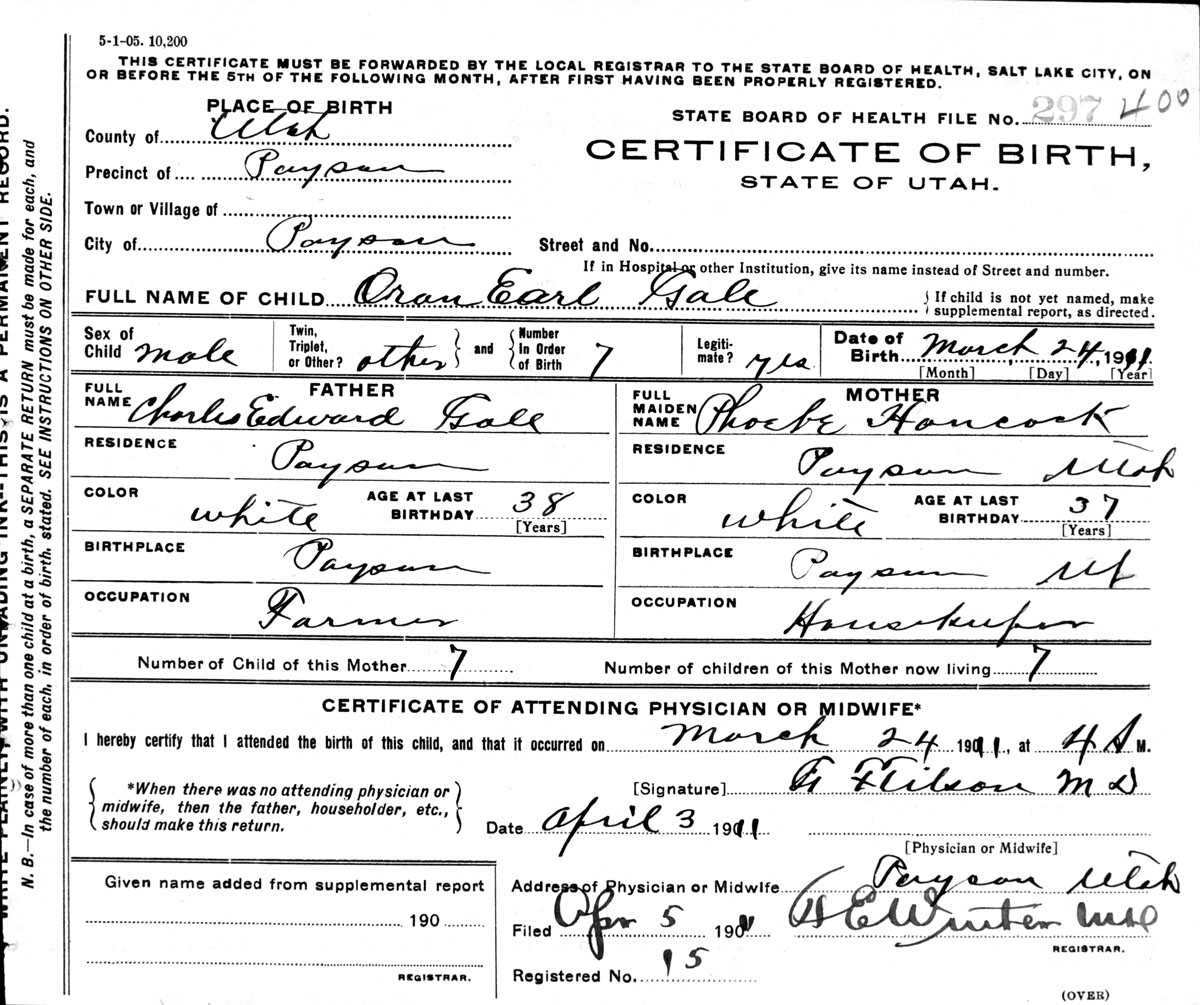 5-1-05. 10,200
THIS CERTIFICATE MUST BE FORWARDED BY THE LOCAL REGISTRAR TO THE STATE BOARD OF HEALTH, SALT LAKE CITY, ON
OR BEFORE THE 5TH OF THE FOLLOWING MONTH, AFTER FIRST HAVING BEEN PROPERLY REGISTERED.
PLACE OF BIRTH
STATE BOARD OF HEALTH FILE No. 297 400
County of Utah
CERTIFICATE OF BIRTH,
STATE OF UTAH.
Precinct of Payson
Town or Village of
City of Payson Street and No.
If in Hospital or other Institution, give its name instead of Street and number.
FULL NAME OF CHILD Oran Earl Gale
If child is not yet named, make
supplemental report, as directed.
Sex of
Child male
Twin,
Triplet,
or Other? other
and
Number
In Order
of Birth 7
Legiti-
mate? yes
Date of
Birth March 24, 1911
[Month] [Day] [Year]
FATHER
FULL
NAME Charles Edward Gale
RESIDENCE Payson
COLOR white
AGE AT LAST
BIRTHDAY 38
[Years]
BIRTHPLACE Payson
OCCUPATION Farmer
MOTHER
FULL
MAIDEN
NAME Phoebe Hancock
RESIDENCE Payson Utah
COLOR white
AGE AT LAST
BIRTHDAY 37
[Years]
BIRTHPLACE Payson Ut
OCCUPATION Housekeeper
Number of Child of this Mother 7 Number of children of this Mother now living 7
CERTIFICATE OF ATTENDING PHYSICIAN OR MIDWIFE*
I hereby certify that I attended the birth of this child, and that it occurred on March 24 1911, at 4 A M.
*When there was no attending physician or
midwife, then the father, householder, etc.,
should make this return.
[Signature] M D
Date April 3 1911
[Physician or Midwife]
Given name added from supplemental report
190
REGISTRAR.
Address of Physician or Midwife Payson Utah
Filed Apr 5 1901 Winter
REGISTRAR.
Registered No. 15
(OVER)
THIS IS A PERMANENT RECORD.
N. B.—In case of more than one child at a birth, a SEPARATE RETURN must be made for each, and
the number of each, in order of birth, stated. SEE INSTRUCTIONS ON OTHER SIDE.